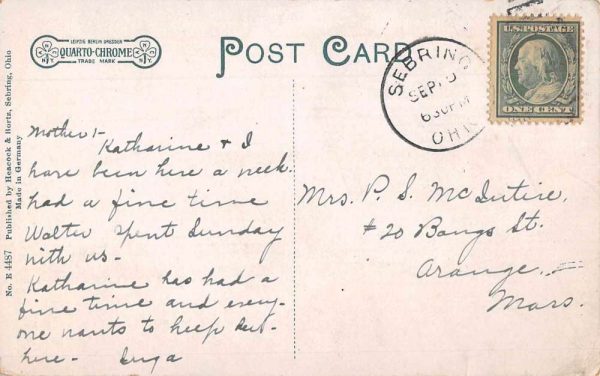 LEIPZIG BERLIN DRESDEN
QUARTO-CHROME
TRADE MARK
POST CARD
SEBRING
SEP
630PM
OHIO
U.S. POSTAGE
ONE CENT
No. E 4487 Published by Heacock & Hortz, Sebring, Ohio
Made in Germany
Mother:-
Katharine & I
have been here a week.
had a fine time
Walter spent Sunday
with us -
Katharine has had a
fine time and every-
one wants to keep her
here -
Mrs. P. S. McIntire,
#20 Bangs St.
Orange,
Mass.